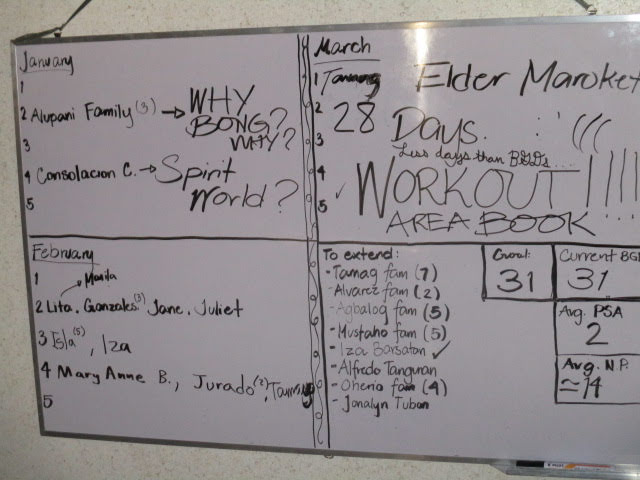 January
1
2 Alupani Family (3) → WHY
BONG?
WHY?
3
4 Consolacion C. → Spirit
World?
5
February
1
Manila
2 Lita. Gonzales (3) Jane. Juliet
3 Isla (5), Iza
4 Mary Anne B., Jurado (2),
5
March
1 Elder Maroket
2 28 Days.
3 Less days than BGDs....
4 WORKOUT !!!!
5 AREA BOOK
To extend:
- Tamag fam (7)
- Alvarez fam (2)
- Agbalog fam (5)
- Mustaho fam (5)
- Iza Barsatan ✓
- Alfredo Tangunan
- Oherio fam (4)
- Jonalyn Tubon
Goal:
31
Current BG
31
Avg. PSA
2
Avg. N.P.
≃14